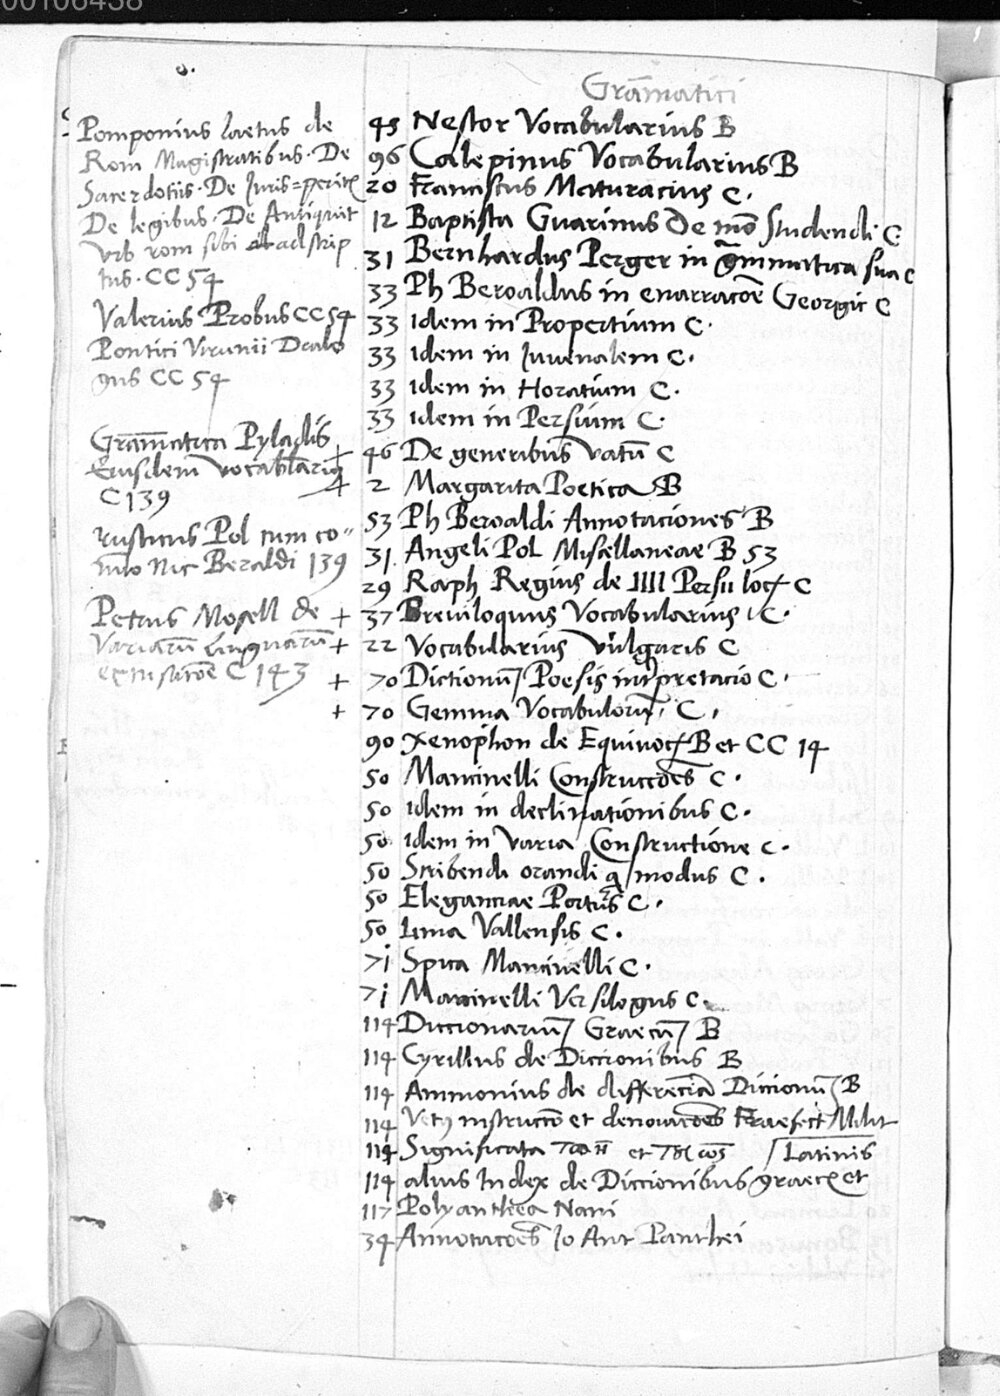 00106438
Gram̄atici
Pomponius Laetus de
Rom Magistratibus · De
Sacerdotiis · De Juris=perit
De legibus · De Antiquit
Vrb rom sibi adscrip
tus · CC 54
Valerius Probus CC 54
Pontici Virunii Dialo
gus CC 54
Gram̄atica Pyladis
Eiusdem Vocab̄lariū
C 139
rusticus Pol cum co¨
m̄to Nic Beraldi 139
Petrus Mosell de
Variarū linguarū
C 143
45 Nestor Vocabularius B
96 Calepinus Vocabularius B
20 Franciscus Maturacius C.
12 Baptista Guarinus De mō Studendi C
31 Bernhardus Perger in gm̄matica sua C
33 Ph Beroaldus in enarracōe Georgic C
33 idem in Propertium C.
33 idem in Juuenalem C.
33 idem in Horatium C.
33 idem in Persium C.
+ 46 De generibus vatū C
+ 2 Margarita Poetica B
53 Ph Beroaldi Annotaciones B
31 Angeli Pol Miscellaneae B 53
29 Raph Regius de IIII Persii loc C
+ 37 Breuiloquus Vocabularius C.
+ 22 Vocabularius Vulgaris C
+ 70 Dictionū Poesis intpretacio C.
+ 70 Gemma Vocabulorū, C,
90 Xenophon de Equiuoc B et CC 14
50 Mancinelli Construccōes C.
50 idem in declinationibus C.
50 idem in Varia Constructione C.
50 Scribendi orandi q modus C.
50 Elegantiae Portus C.
50 Lima Vallensis C.
71 Spica Mancinelli C.
71 Mancinelli Versilogus C.
114 Diccionariū Graecū B
114 Cyrillus de Diccionibus B
114 Ammonius de differēcia Diccionū B
114 Vet instructō et denoiacōes Praefect Milit
114 Significata τοῦ ἢ et τοῦ ὡς / Latinis
114 alius Index de Diccionibus graec et
117 Polyanthea Nani
34 Annotacōes Jo Ant Panthei